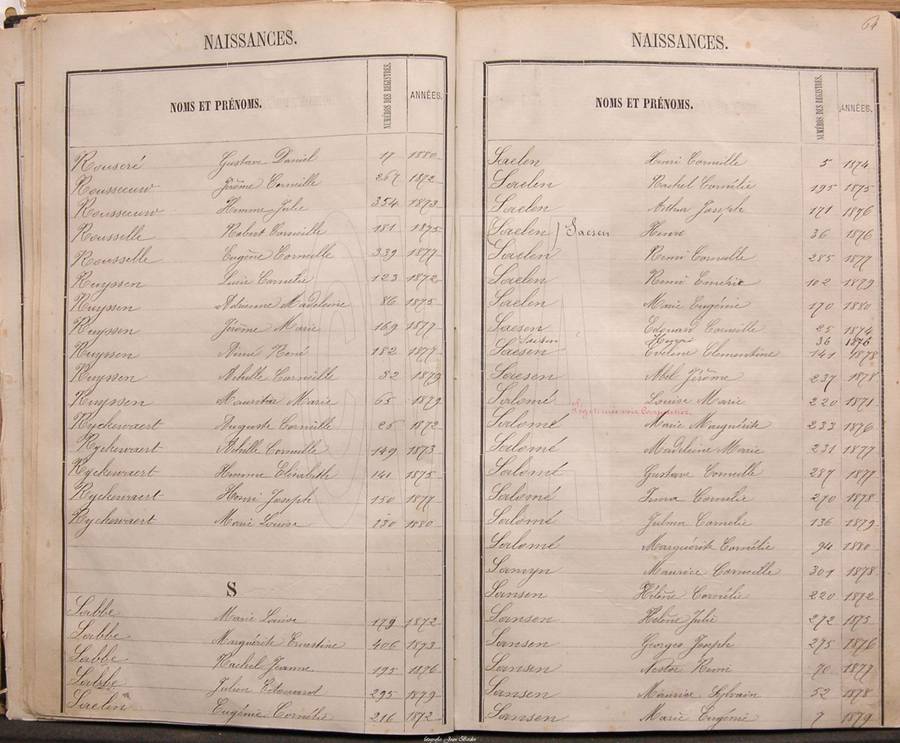 NAISSANCES.
NOMS ET PRÉNOMS. NUMÉROS DES REGISTRES. ANNÉES.
Rouseré Gustave Daniel 17 1880
Rousseeuw Jérôme Corneille 267 1872
Rousseeuw Hemme Julie 354 1873
Rousselle Robert Corneille 181 1875
Rousselle Eugène Corneille 339 1877
Ruyssen Lucie Cornélie 123 1872
Ruyssen Adrienne Madeleine 86 1875
Ruyssen Jérôme Marie 169 1877
Ruyssen Aimé René 182 1877
Ruyssen Achille Corneille 52 1879
Ruyssen Maurice Marie 65 1879
Ryckewaert Auguste Corneille 25 1872
Ryckewaert Achille Corneille 149 1873
Ryckewaert Hemme Elisabeth 141 1875
Ryckewaert Henri Joseph 150 1877
Ryckewaert Marie Louise 130 1880
S
Sabbe Marie Louise 179 1872
Sabbe Marguérite Ernestine 406 1873
Sabbe Rachel Jeanne 195 1876
Sabbé Julien Edouard 295 1879
Saelen Eugénie Cornélie 216 1872
64
NAISSANCES.
NOMS ET PRÉNOMS. NUMÉROS DES REGISTRES. ANNÉES.
Saelen Henri Corneille 5 1874
Saelen Rachel Cornélie 195 1875
Saelen Arthur Joseph 171 1876
Saelen Saesen Henri 36 1876
Saelen Remi Corneille 285 1877
Saelen Remi Emérie 102 1879
Saelen Marie Eugénie 170 1880
Saesen Edouard Corneille 25 1874
Saesen Henri 36 1876
Saesen Eveline Clementine 141 1878
Saesen Abel Jérôme 237 1878
Salomé Louise Marie 220 1871
Salomé Marie Marguérite 233 1876
Salomé Madeleine Marie 231 1877
Salomé Gustave Corneille 287 1877
Salomé Irma Cornélie 270 1878
Salomé Julma Cornelie 136 1879
Salomé Marguérite Cornélie 94 1880
Samyn Maurice Corneille 301 1878
Sansen Hélène Cornélie 220 1872
Sansen Hélène Julie 272 1875
Sansen Georges Joseph 275 1876
Sansen Nestor Remi 70 1877
Sansen Maurice Sylvain 52 1878
Sansen Marie Eugénie 7 1879